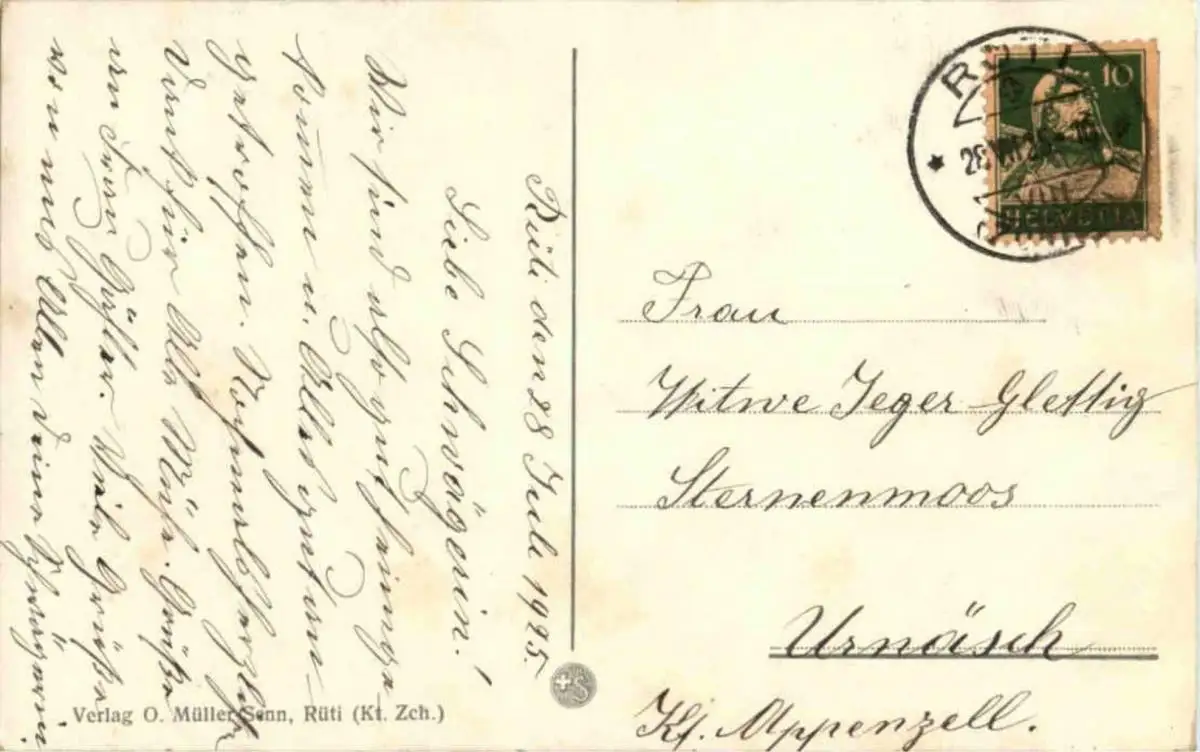 Rüti den 28 Juli 1925.
Liebe Schwägerin!
Wir sind also gut heimge
kommen u. Alles gut an-
getroffen. Nochmals herzlich
Dank für Alle Mühe. Grüße
an Frau Viele Grüße
von uns Allen Deine Schwägerin.
Verlag O. Müller-Senn, Rüti (Kt. Zch.)
RÜTI
(ZÜRICH)
10
HELVETIA
Frau
Witwe Jeger Glettig
Sternenmoos
Urnäsch
Kt. Appenzell.